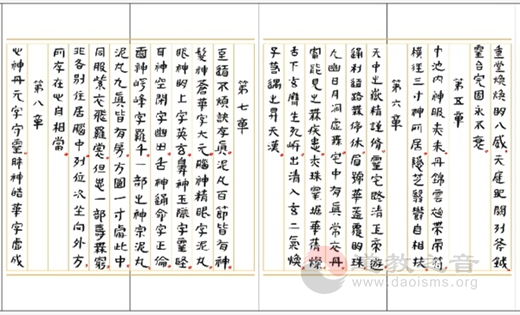 重堂煥煥明八威天庭地關列斧
靈臺盤固永不衰
第五章
中池內神服赤朱丹錦雲袍帶虎符
橫徑三寸神所居隱芝翳鬱自相扶
第六章
天中之嶽精謹修靈宅既清玉帝遊
通利道路無停休眉號華蓋覆明珠
九幽日月洞虛無宅中有真常衣丹
審能見之無疾患赤珠靈裙華蒨燦
舌下玄膺生死岸出清入玄二氣煥
子若遇之昇天漢
第七章
至道不煩訣存真泥丸百節皆有神
髮神蒼華字太元腦神精根字泥丸
眼神明上字英玄鼻神玉壟字靈堅
耳神空閑字幽田舌神通命字正倫
齒神崿峰字羅千一部之神宗泥丸
泥丸九真皆有房方圓一寸處此中
同服紫衣飛羅裳但思一部壽無窮
非各別住居腦中列位次坐向外方
所存在心自相當
第八章
心神丹元字守靈肺神皓華字虛成
道教之音
www.daoisms.org